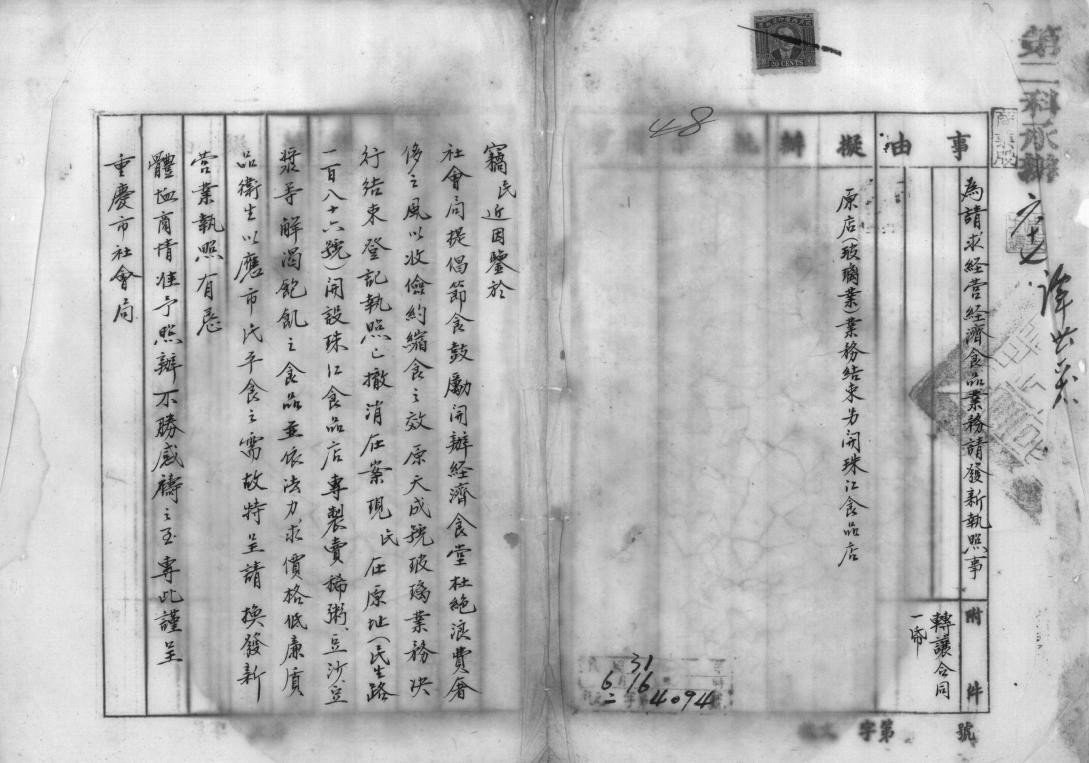 第二科承辦
商業股
20 CENTS
事由
擬辦
為請求経营経濟食品業務請發新執照事
附件
轉讓合同一帋
原店(玻璃業)業務结束另開珠江食品店
48
31
6 16
4094
字第
號
竊民近因鑒於
社會局提倡節食鼓勵開辦経濟食堂杜絶浪費奢
侈之風以收儉約縮食之效原天成號玻璃業務決
行结束登記執照已撤消在案現民在原址(民生路
二百八十六號)開設珠江食品店專製賣稀粥豆沙豆
漿等解渴飽飢之食品並依法力求價格低廉質
品衛生以應市民平食之需故特呈請換發新
营業執照有忌
體恤商情准予照辦不勝感禱之至專此謹呈
重慶市社會局